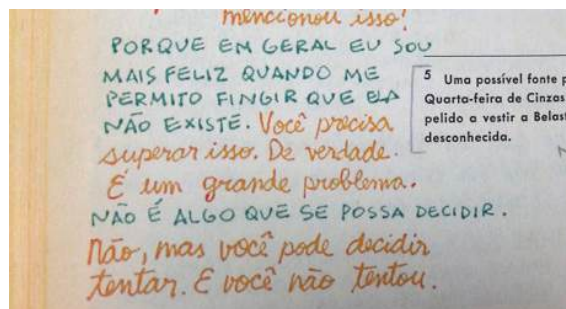 mencionou isso!
PORQUE EM GERAL EU SOU
MAIS FELIZ QUANDO ME
PERMITO FINGIR QUE ELA
NÃO EXISTE. Você precisa
superar isso. De verdade.
É um grande problema.
NÃO É ALGO QUE SE POSSA DECIDIR.
Não, mas você pode decidir
tentar. E você não tentou.
5 Uma possível fonte p
Quarta-feira de Cinzas
pelido a vestir a Belast
desconhecida.